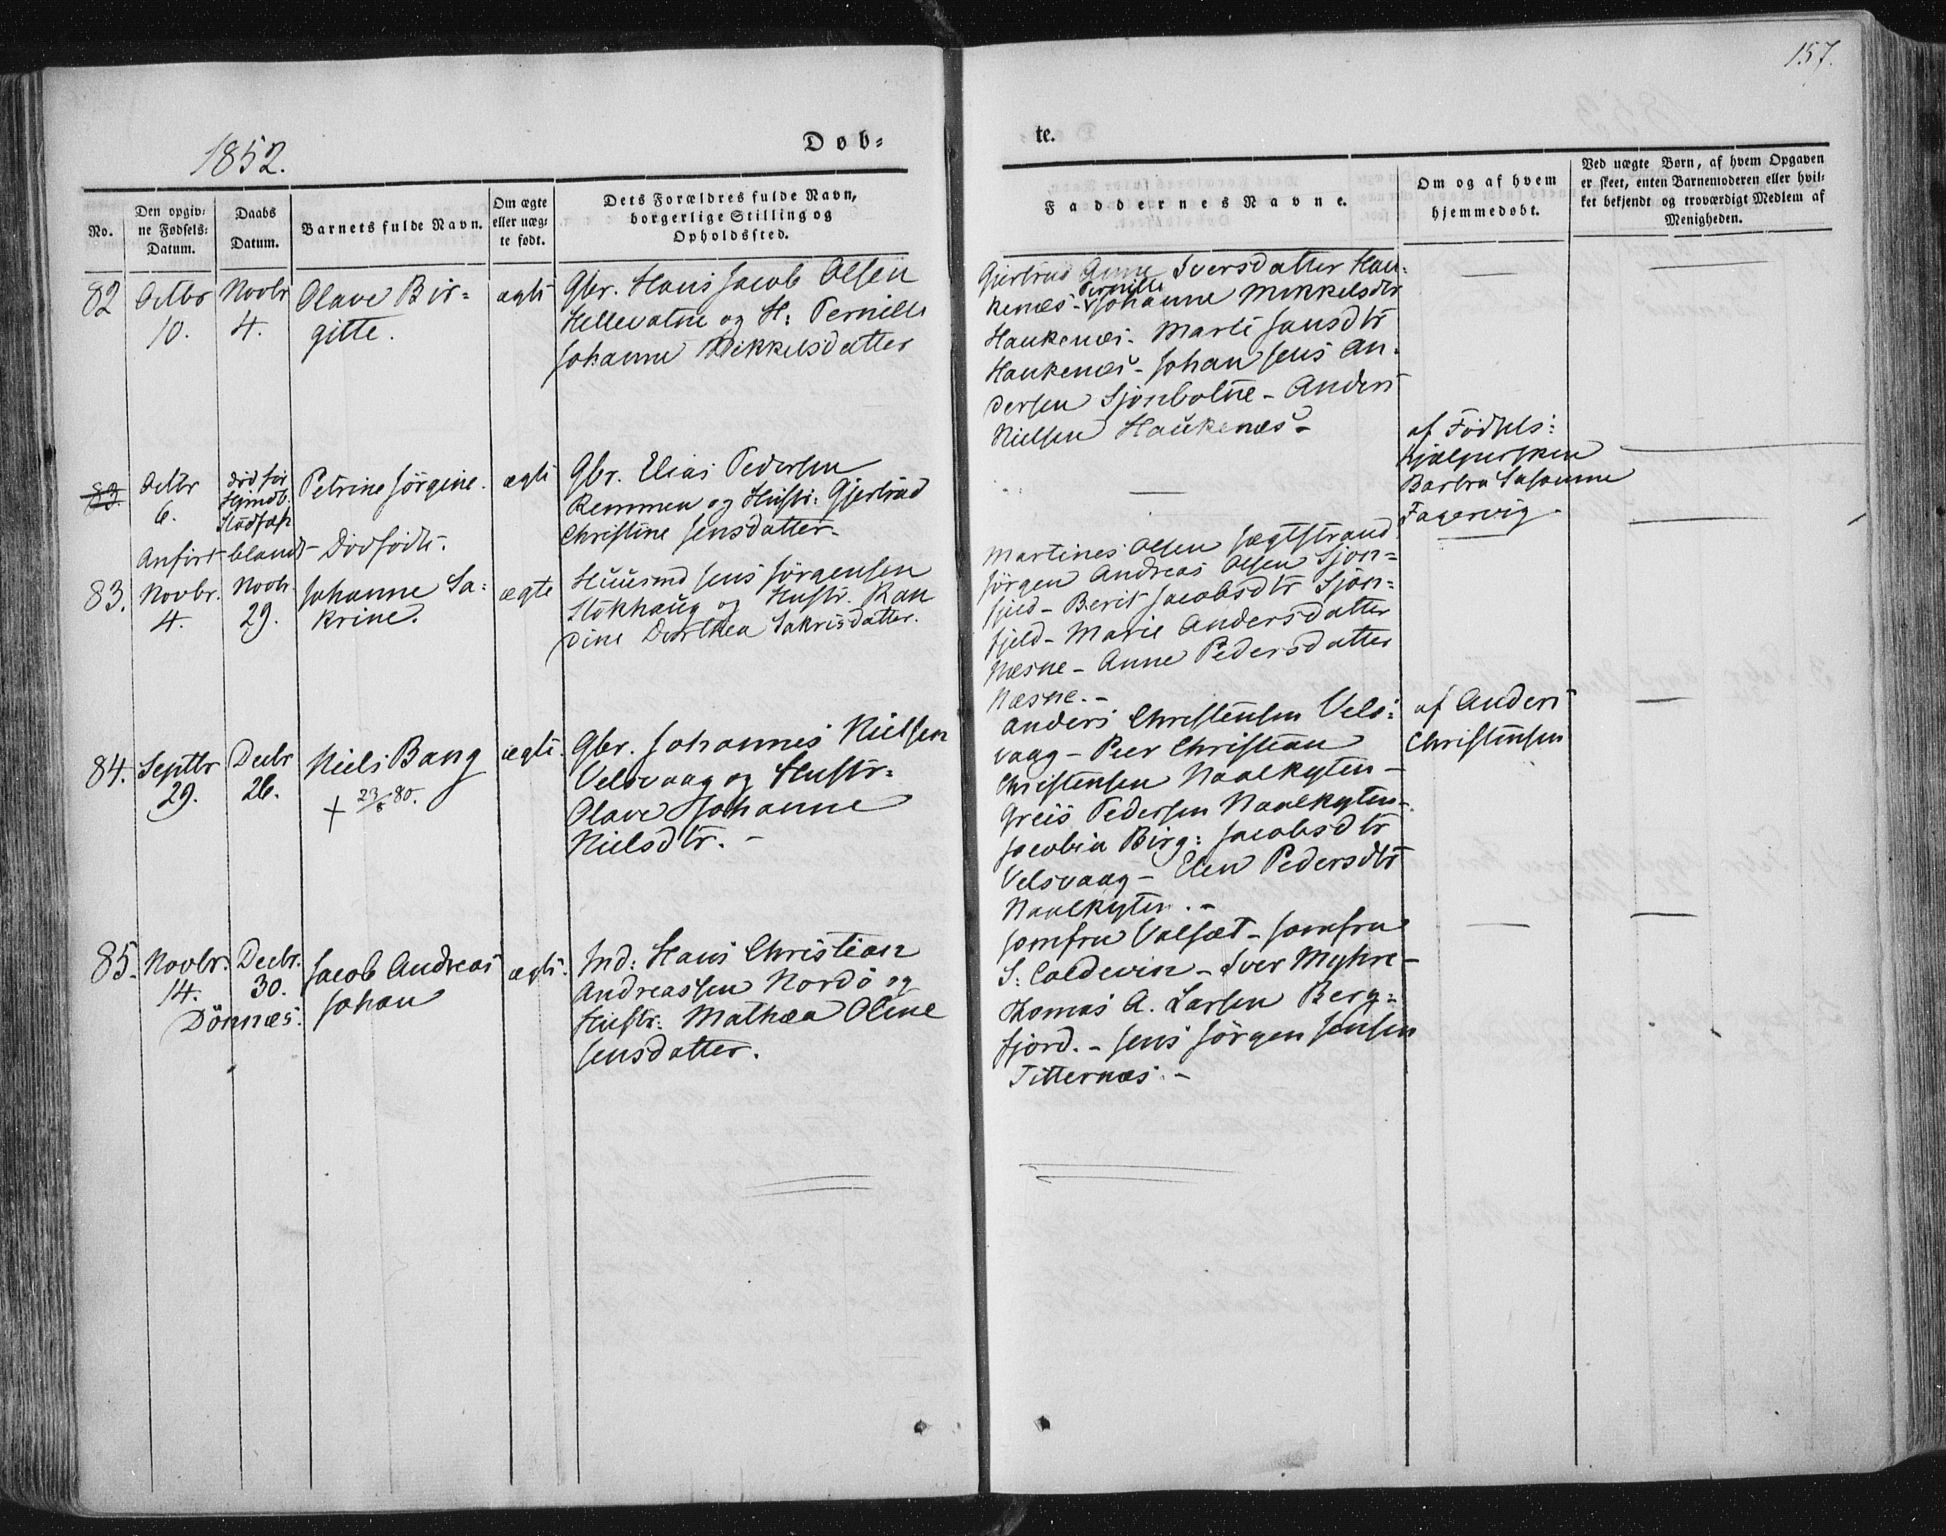 157.
1852.
Døb-
te.
No.
Den opgiv-
ne Fødsels-
Datum.
Daabs
Datum.
Barnets fulde Navn.
Om ægte
eller uæg-
te født.
Dets Forældres fulde Navn,
borgerlige Stilling og
Opholdssted.
Faddernes Navne.
Om og af hvem
hjemmedøbt.
Ved uægte Børn, af hvem Opgaven
er skeet, enten Barnemoderen eller hvil-
ket bekjendt og troværdigt Medlem af
Menigheden.
82
Octbr
10.
Novbr
4.
Olave Bir-
gitte.
ægte
Gbr. Hans Jacob Olsen
Hellevatne og H: Pernille
Johanne Mikkelsdatter
Gjertrud Anne Iversdatter Hau-
kenæs - Pernille Johanne Mikkelsdtr
Haukenæs - Marte Jansdtr
Haukenæs - Johan Jens An-
dersen Sjonbotne - Anders
Nielsen Haukenæs -
83.
Octbr
6.
død før
Hjemdb.
Stadfæst
Petrine Jörgine.
ægte
Gbr. Elias Pedersen
Remmen og Hustr: Gjertrud
Christine Jensdatter -
af Födsels-
hjælpersken
Barbra Susanne
Fagervig -
Anfört blandt Dödfödte.
83.
Novbr.
4.
Novbr
29.
Johanne Sa-
krine.
ægte
Huusmd Jens Jörgensen
Stokhaug og Hustr. Ran
dine Dorthea Sakrisdatter.
Martines Olsen Jægtstrand
Jörgen Andreas Olsen Sjon-
fjeld - Berit Jacobsdtr Sjon-
fjeld - Marie Andersdatter
Næsne - Anne Pedersdatter
Næsne. -
84.
Septbr
29.
Decbr
26.
Niels Bang
+ 23/8 80.
ægte.
Gbr. Johannes Nielsen
Velsvaag og Hustr.
Olave Johanne
Nielsdtr. -
Anders Christensen Vels-
vaag - Peer Christian
Christensen Naalkyten -
Greis Pedersen Naalkyten -
Jacobin Birg: Jacobsdtr
Velsvaag - Elen Pedersdtr
Naalkyten. -
af Anders
Christensen
85.
Novbr.
14.
Decbr.
30.
Dönnæs.
Jacob Andreas
Johan
ægte.
Ind: Hans Christian
Andreassen Nordö og
Hustr: Mathea Oline
Jensdatter.
Jomfru Valsæt - Jomfru
S: Coldevin - Iver Myhre -
Thomas A. Larsen Berg-
fjord. - Jens Jörgen Jensen
Titternæs. -